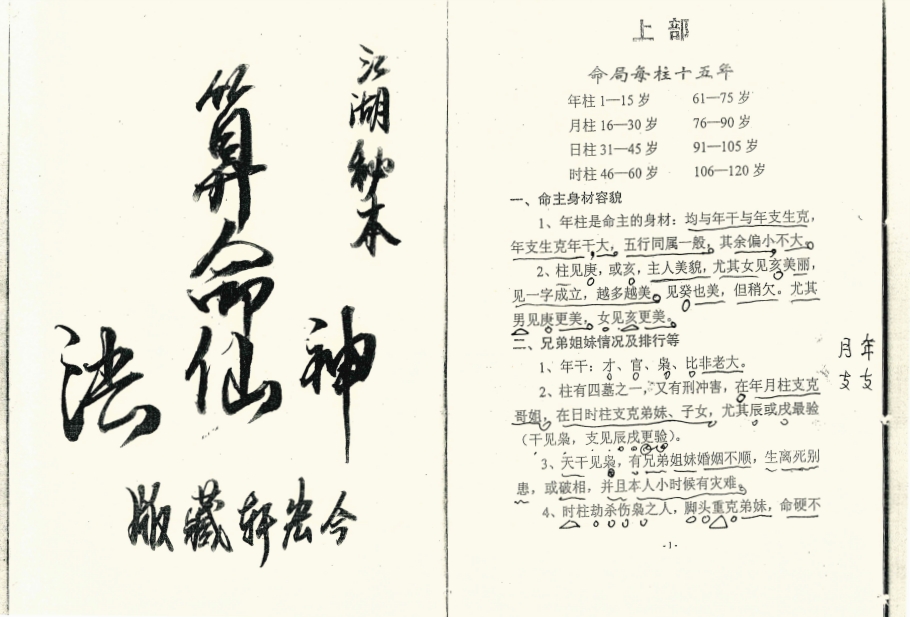 江湖秘本
算命
神仙法
今宏轩藏版
上部
命局每柱十五年
年柱 1—15 岁 61—75 岁
月柱 16—30 岁 76—90 岁
日柱 31—45 岁 91—105 岁
时柱 46—60 岁 106—120 岁
一、命主身材容貌
1、年柱是命主的身材：均与年干与年支生克，
年支生克年干大，五行同属一般，其余偏小不大。
2、柱见庚，或亥，主人美貌，尤其女见亥美丽，
见一字成立，越多越美。见癸也美，但稍欠。尤其
男见庚更美，女见亥更美。
二、兄弟姐妹情况及排行等
1、年干：才、官、枭、比非老大。
2、柱有四墓之一，又有刑冲害，在年月柱支克
哥姐，在日时柱支克弟妹、子女，尤其辰或戌最验
（干见枭，支见辰戌更验）。
3、天干见枭，有兄弟姐妹婚姻不顺，生离死别
患，或破相，并且本人小时候有灾难。
4、时柱劫杀伤枭之人，脚头重克弟妹，命硬不
-1-
年支
月支